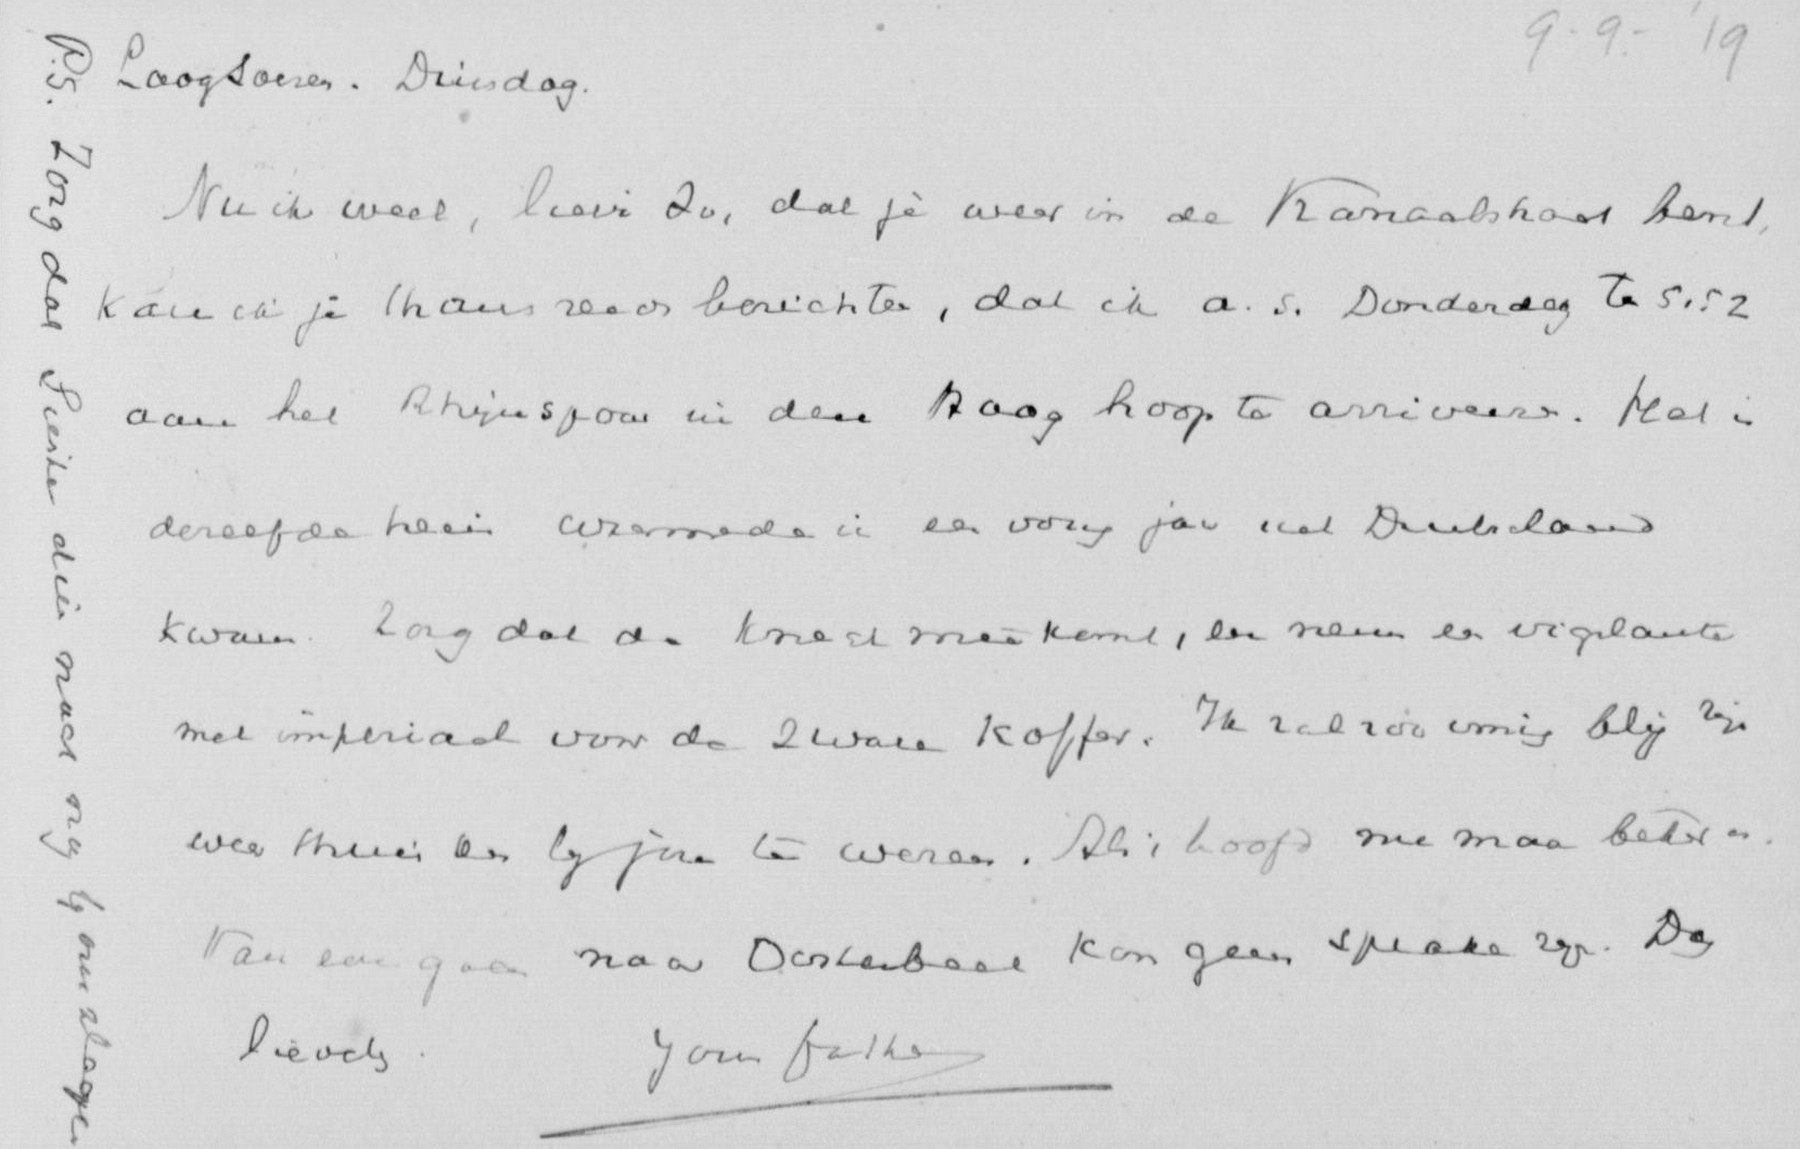 9-9-'19
Laag Soeren. Dinsdag.
Nu ik weet, lieve Zo, dat je weer in de Kanaalstraat bent,
kan ik je thans reeds berichten, dat ik a. s. Donderdag te 5.52
aan het Rhijnspoor in den Haag hoop te arriveeren. Het is
dezelfde trein waarmede ik een vorig jaar uit Duitschland
kwam. Zorg dat de knecht meekomt, en neem een vigilante
met imperiaal voor de zware koffer. Ik zal zóó innig blij zijn
weer thuis en bij jou te wezen. Als 't hoofd me maar beter is.
Van een gaan naar Oosterbeek kon geen sprake zijn. Dag
lieverds. Your father
P.S. Zorg dat Sientje dien nacht nog bij ons slape.